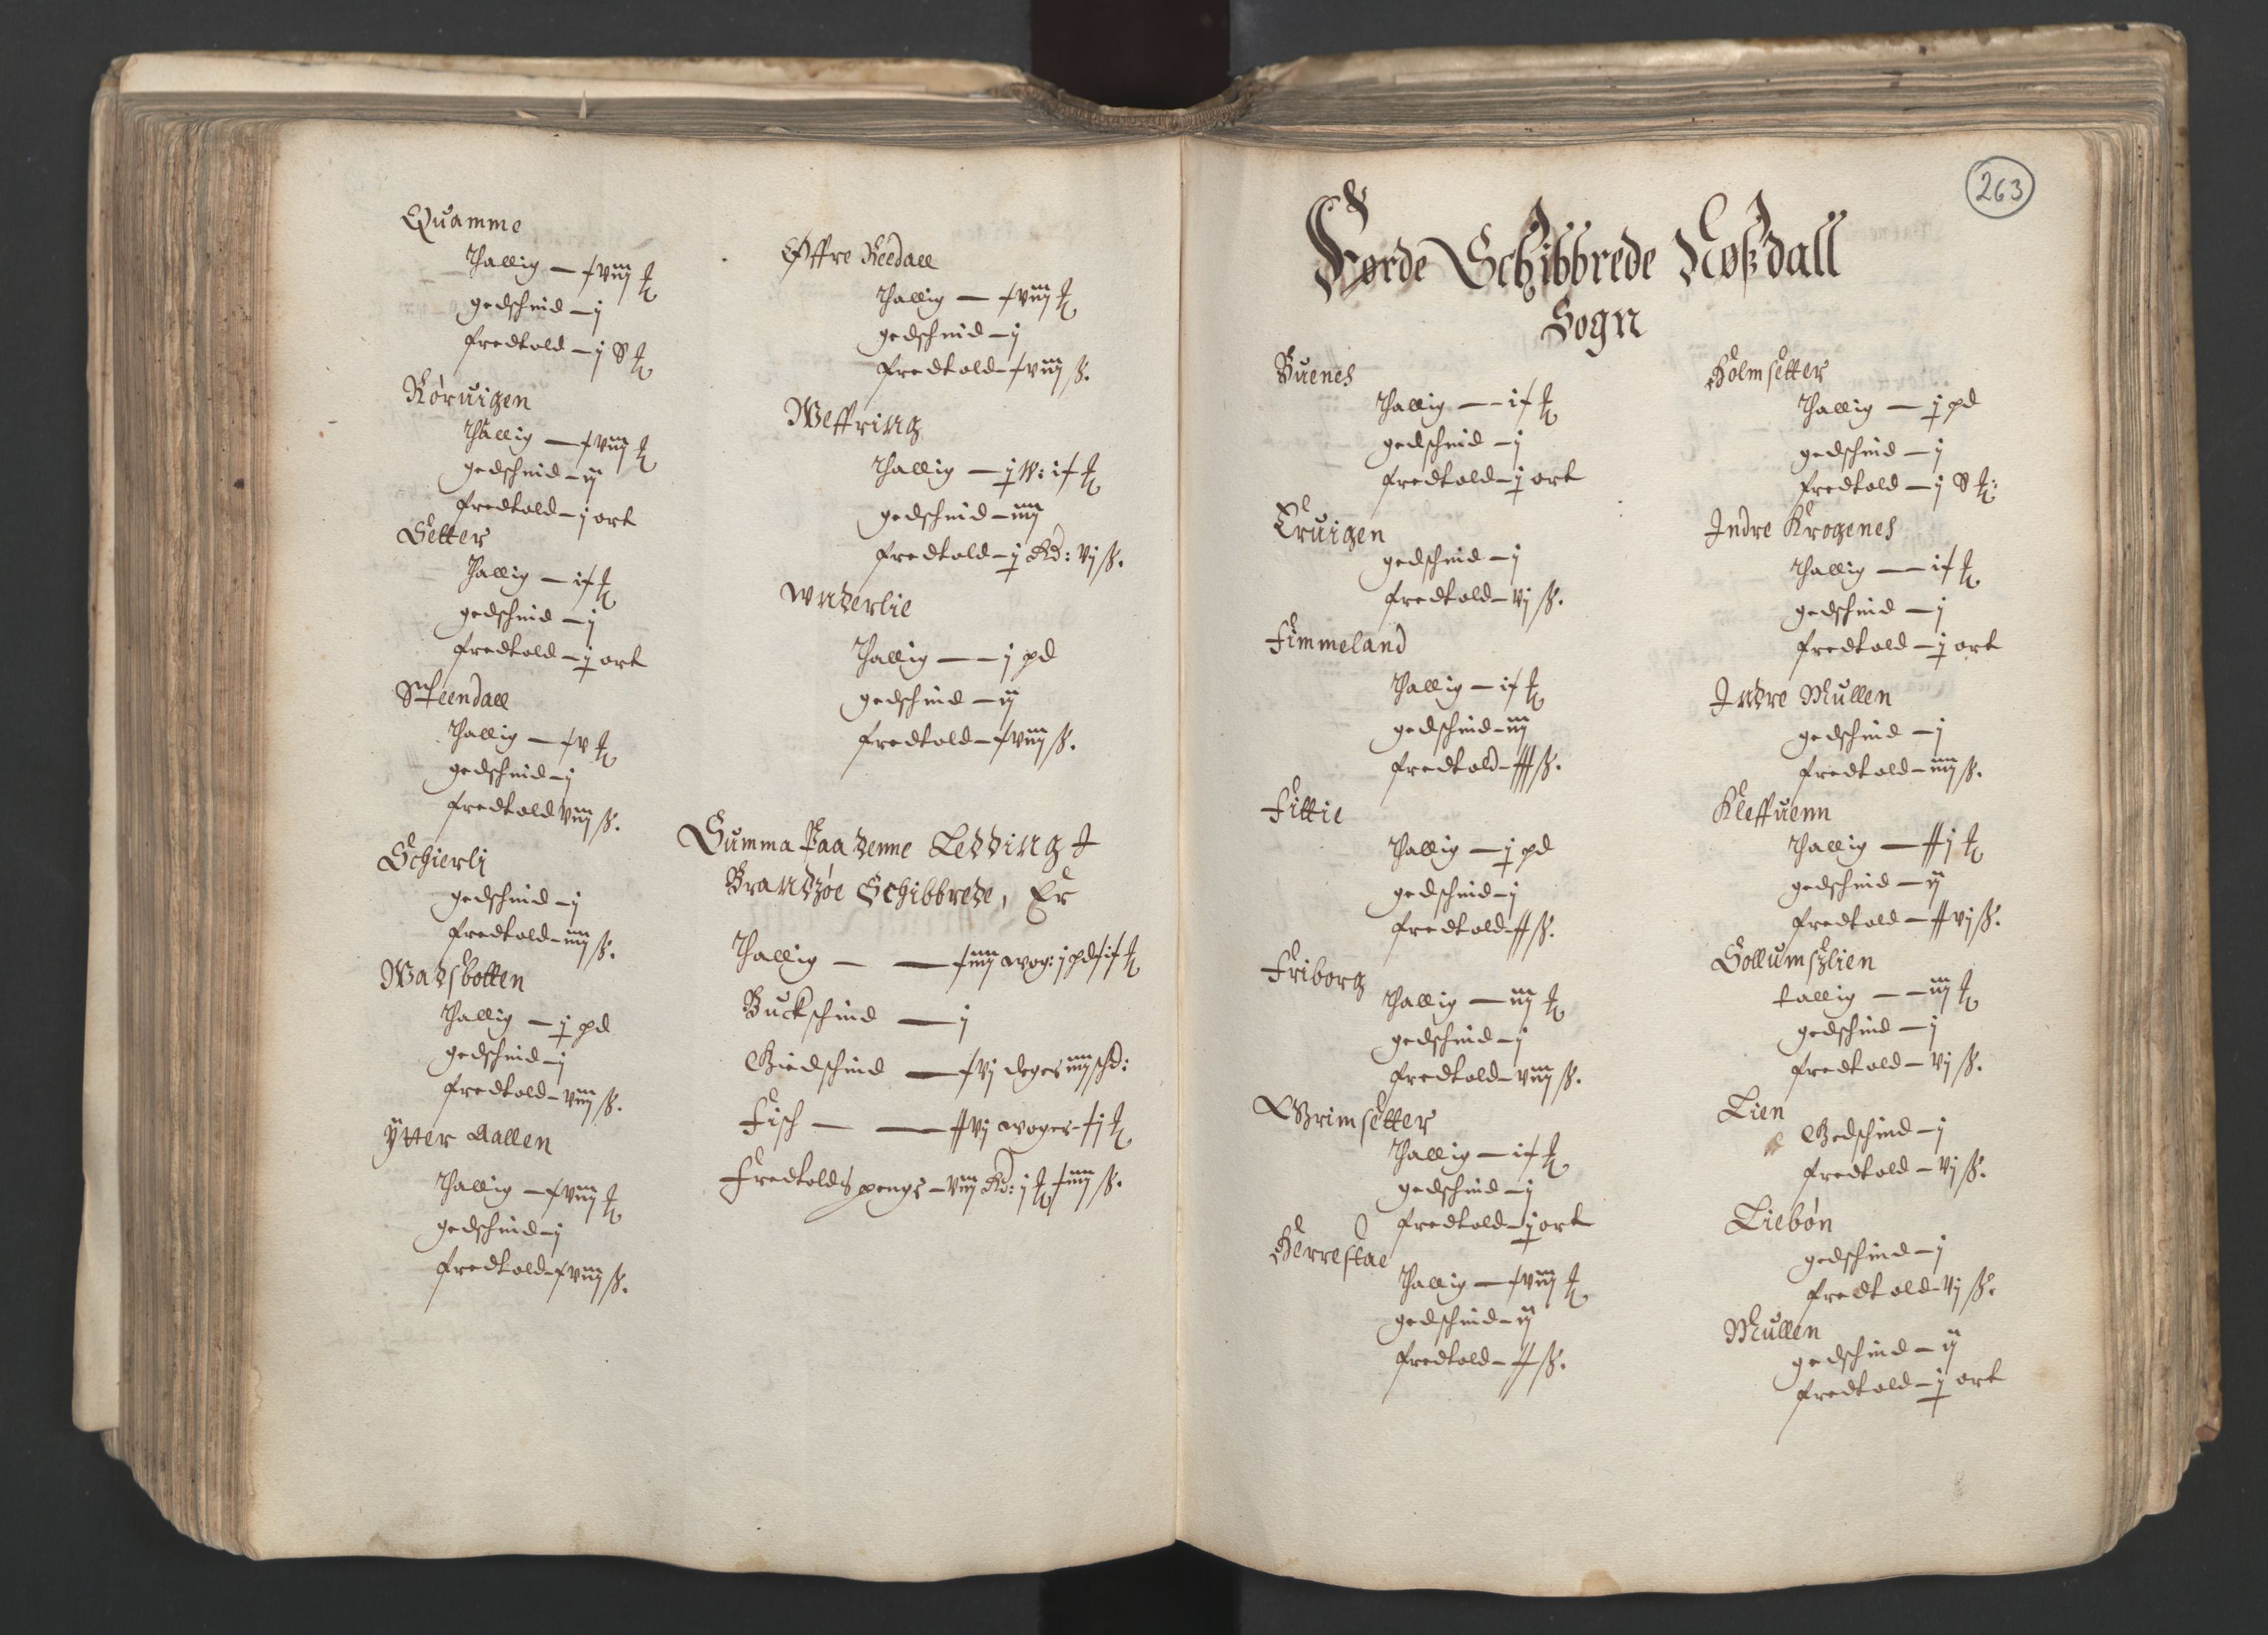 Quamme
Thallig – xviij ℔
gedschind – j
fredtold – j S ℔
Røruigen
Thallig – xviij ℔
gedschind – ij
fredtold – j ort
Setter
Thallig – ix ℔
gedschind – j
fredtold – j ort
Steendall
Thallig – xv ℔
gedschind – j
fredtold viij ß.
Schierlj
gedschind – j
fredtold – iiij ß.
Wadsbotten
Thallig – j pd
gedschind – j
fredtold – viij ß.
ÿtter Aallen
Thallig – xviij ℔
gedschind – j
fredtold – xviij ß.
Øffre Reedall
Thallig – xviij ℔
gedschind – j
fredtold – xviij ß.
Weffring
Thallig – j W: ix ℔
gedschind – iiij
fredtold – j Rd: vj ß.
Wnderlie
Thallig – j pd
gedschind – ij
fredtold – xviij ß.
Summa Paa denne Ledding I
Brandzøe Schibbrede, Er
Thallig – xiiij wog: j pd xix ℔
Buckschind – j
Giedschind – xvj deger iiij schd:
Fisch – xxvj woger – xj ℔
Fredtolds penge – viij Rd: j ℔ xiiij ß.
263
Førde Schibbrede Noßdall
Sogn
Buenes
Thallig – ix ℔
gedschind – j
fredtold – j ort
Eruigen
gedschind – j
fredtold – vj ß.
Fimmeland
Thallig – ix ℔
gedschind – iij
fredtold – xxx ß.
Fittie
Thallig – j pd
gedschind – j
fredtold – xx ß.
Friborg
Thallig – iij ℔
gedschind – j
fredtold – viij ß.
Grimsetter
Thallig – ix ℔
gedschind – j
fredtold – j ort
Herrestae
Thallig – xviij ℔
gedschind – ij
fredtold – xx ß.
Holmsetter
Thallig – j pd
gedschind – j
fredtold – j S ℔:
Indre Krogenes
Thallig – ix ℔
gedschind – j
fredtold – j ort
Indre Mullen
gedschind – j
fredtold – iiij ß.
Kleffuenn
Thallig – xxj ℔
gedschind – ij
fredtold – xxvj ß.
Sollumszlien
tallig – iij ℔
gedschind – j
fredtold – vj ß.
Lien
Gedschind – j
fredtold – vj ß.
Liebøn
gedschind – j
fredtold – vj ß.
Mullen
gedschind – ij
fredtold – j ort